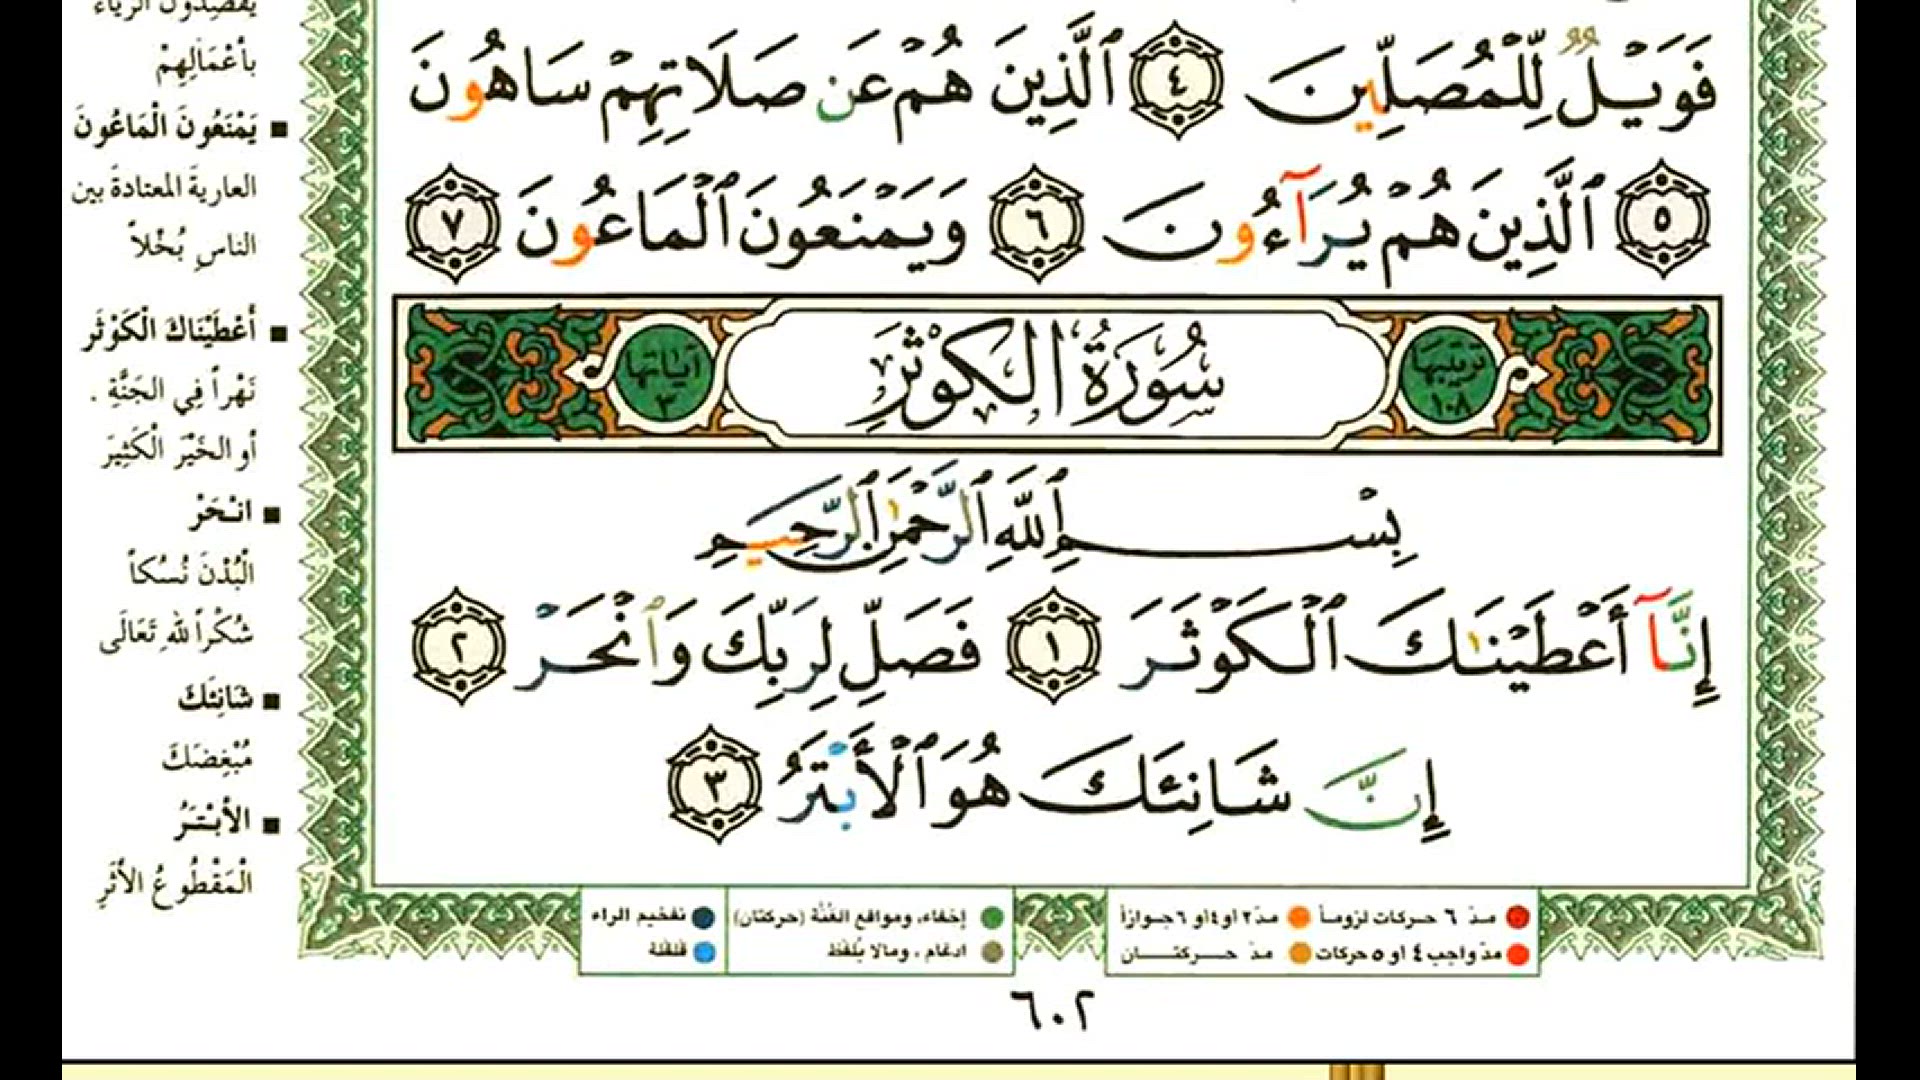 فَوَيْلٌ لِّلْمُصَلِّينَ ٤ ٱلَّذِينَ هُمْ عَن صَلَاتِهِمْ سَاهُونَ
٥ ٱلَّذِينَ هُمْ يُرَآءُونَ ٦ وَيَمْنَعُونَ ٱلْمَاعُونَ ٧
ترتيبها ١٠٨ سُورَةُ الكَوْثَرِ آيَاتها ٣
بِسْمِ ٱللَّهِ ٱلرَّحْمَٰنِ ٱلرَّحِيمِ
إِنَّآ أَعْطَيْنَٰكَ ٱلْكَوْثَرَ ١ فَصَلِّ لِرَبِّكَ وَٱنْحَرْ ٢
إِنَّ شَانِئَكَ هُوَ ٱلْأَبْتَرُ ٣
يَقصِدُون الرِّياء
بأَعْمَالِهِمْ
■ يَمْنَعُونَ الْمَاعُونَ
العاريةَ المعتادةَ بين
الناسِ بُخْلاً
■ أَعْطَيْنَاكَ الْكَوْثَر
نَهْراً فِي الجَنَّةِ .
أو الخَيْرَ الْكَثِيرَ
■ انْحَرْ
الْبُدْنَ نُسُكاً
شُكْراً للهِ تَعَالَى
■ شَانِئَكَ
مُبْغِضَكَ
■ الأَبْتَرُ
الْمَقْطُوعُ الأَثَرِ
مدّ ٦ حركات لزوماً مدّ٢ او٤او ٦جوازاً
مدّ واجب ٤ او ٥ حركات مدّ حركتان
إخفاء، ومواقع الغُنَّة (حركتان)
ادغام ، ومالا يُلفظ
تفخيم الراء
قلقلة
٦٠٢